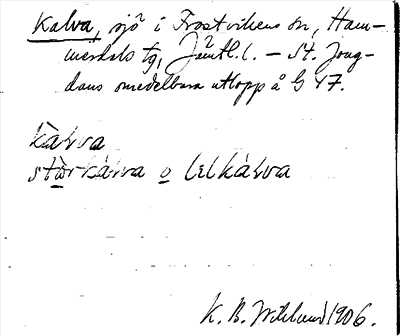 Kalva, sjö i Frostvikens sn, Ham-
merdals tg, Jämtl. l. – St. Joug-
dans omedelbara utlopp å G 47.
kàlva
stòrkálva o lelkálva
K. B. Wiklund 1906.